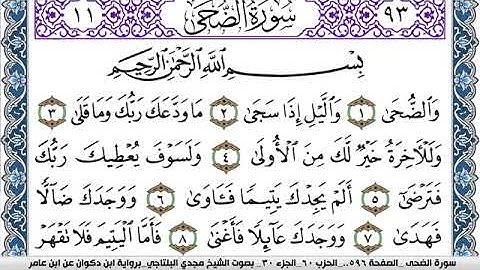 ٩٣ سُورَةُ الضُّحَىٰ ١١
بِسْمِ اللَّهِ الرَّحْمَٰنِ الرَّحِيمِ
وَالضُّحَىٰ ١ وَالَّيْلِ إِذَا سَجَىٰ ٢ مَا وَدَّعَكَ رَبُّكَ وَمَا قَلَىٰ ٣
وَلَلْآخِرَةُ خَيْرٌ لَّكَ مِنَ الْأُولَىٰ ٤ وَلَسَوْفَ يُعْطِيكَ رَبُّكَ
فَتَرْضَىٰ ٥ أَلَمْ يَجِدْكَ يَتِيمًا فَـَٔاوَىٰ ٦ وَوَجَدَكَ ضَآلًّا
فَهَدَىٰ ٧ وَوَجَدَكَ عَآئِلًا فَأَغْنَىٰ ٨ فَأَمَّا الْيَتِيمَ فَلَا تَقْهَرْ
سورة الضحى .. الصفحة ٥٩٦.. الحزب ٦٠.. الجزء ٣٠.. بصوت الشيخ مجدي البلتاجي_برواية ابن ذكوان عن ابن عامر